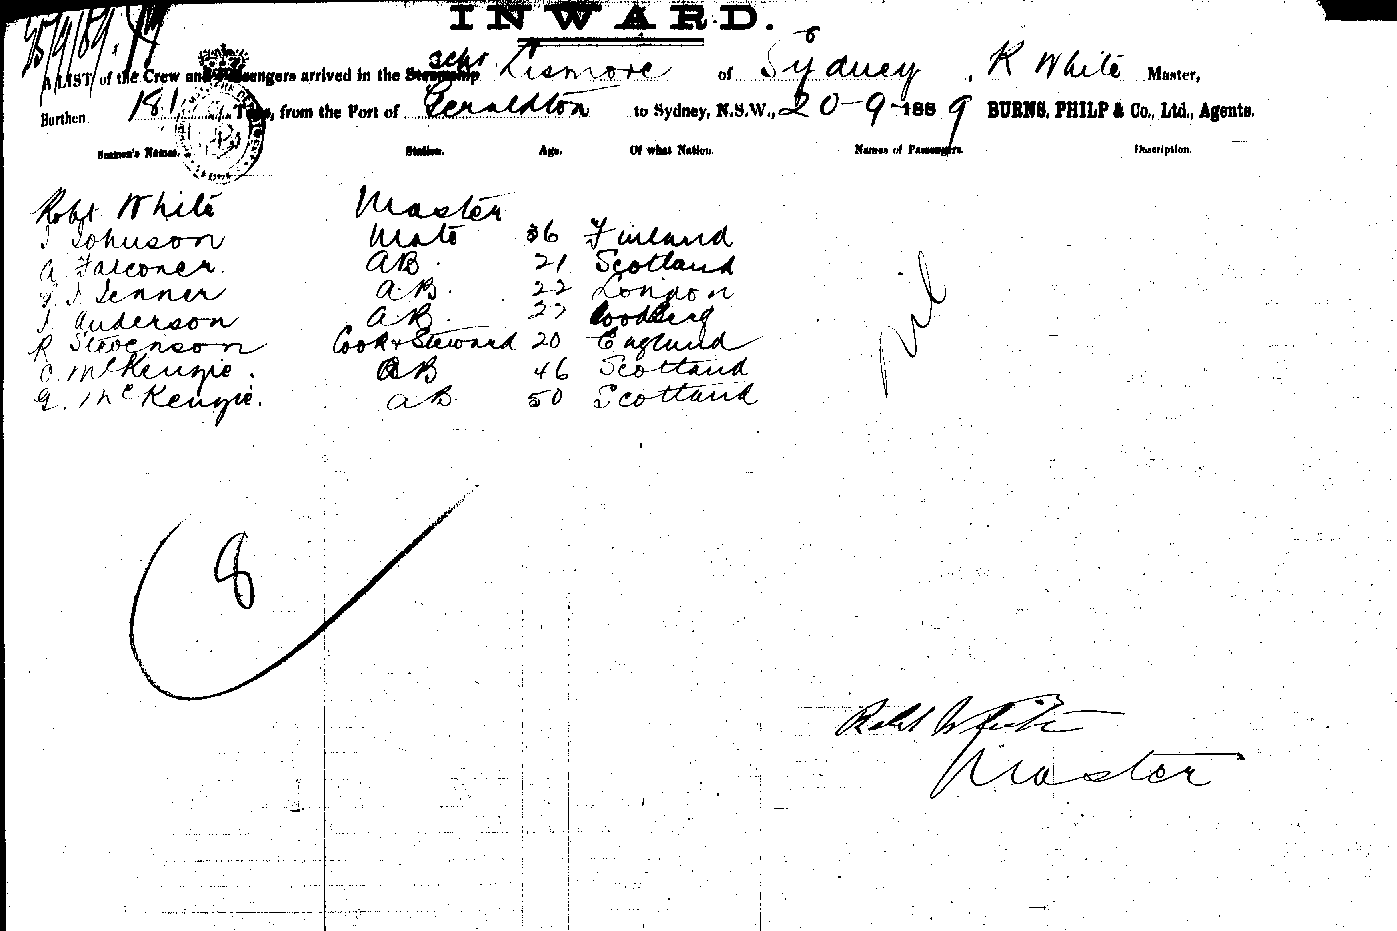 INWARD.
25/9/89.
A LIST of the Crew and Passengers arrived in the Steamship Schr Lismore of Sydney, R White Master,
Burthen 181 Tons, from the Port of Geraldton to Sydney, N.S.W., 20-9-1889 BURNS, PHILP & Co., Ltd., Agents.
Seamen's Names. Station. Age. Of what Nation. Names of Passengers. Description.
Robt White Master
J Johnson Mate 36 Finland
A Falconer. AB. 21 Scotland
J Jenner AB. 22 London
J Anderson AB. 27
R Stevenson Cook & Steward 20 England
C McKenzie. AB 46 Scotland
G. McKenzie. AB 50 Scotland
nil
8
Robt White
Master